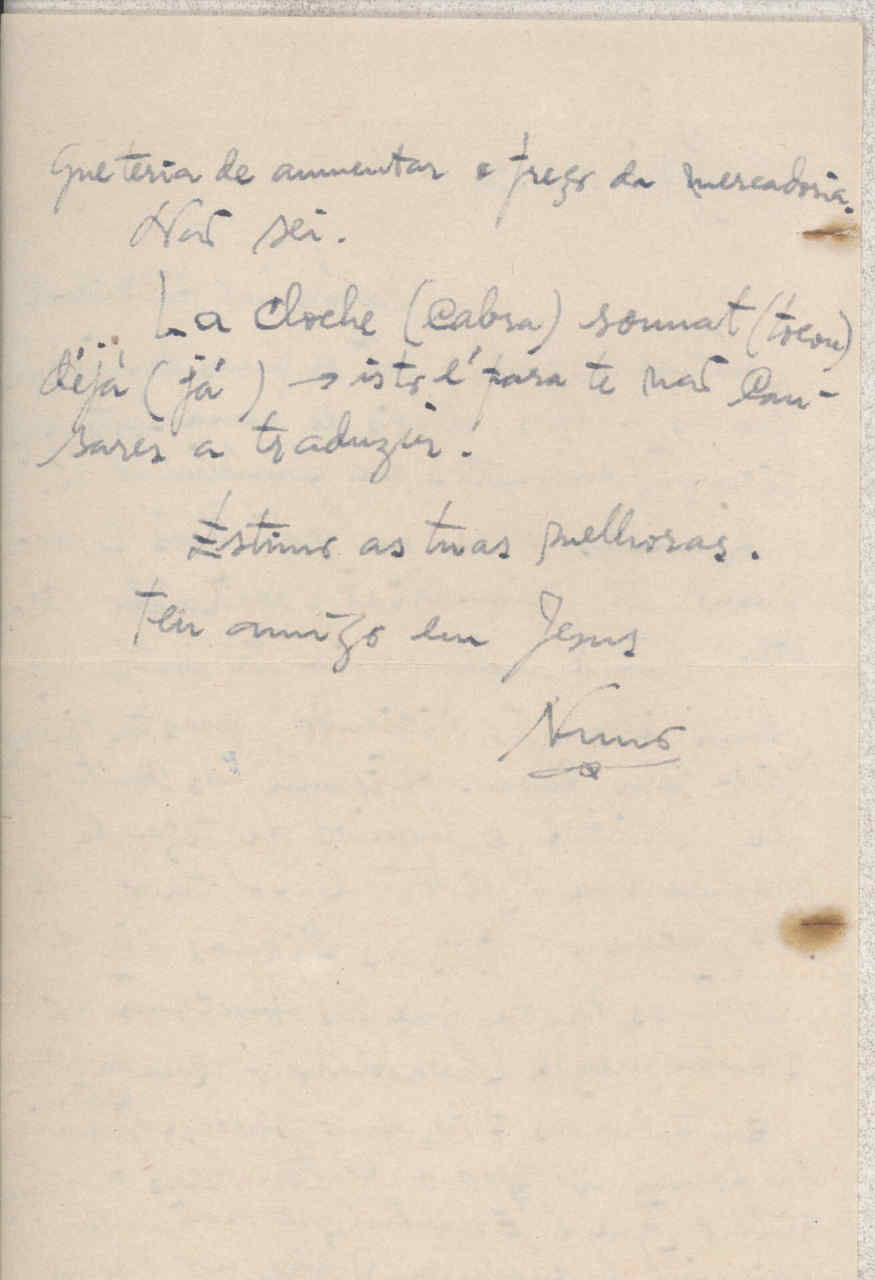 que teria de aumentar o preço da mercadoria.
Não sei.
La cloche (cabra) sonnat (tocou)
déjà (já) → isto é para te não can-
sares a traduzir.
Estimo as tuas melhoras.
Teu amigo em Jesus
Nuno